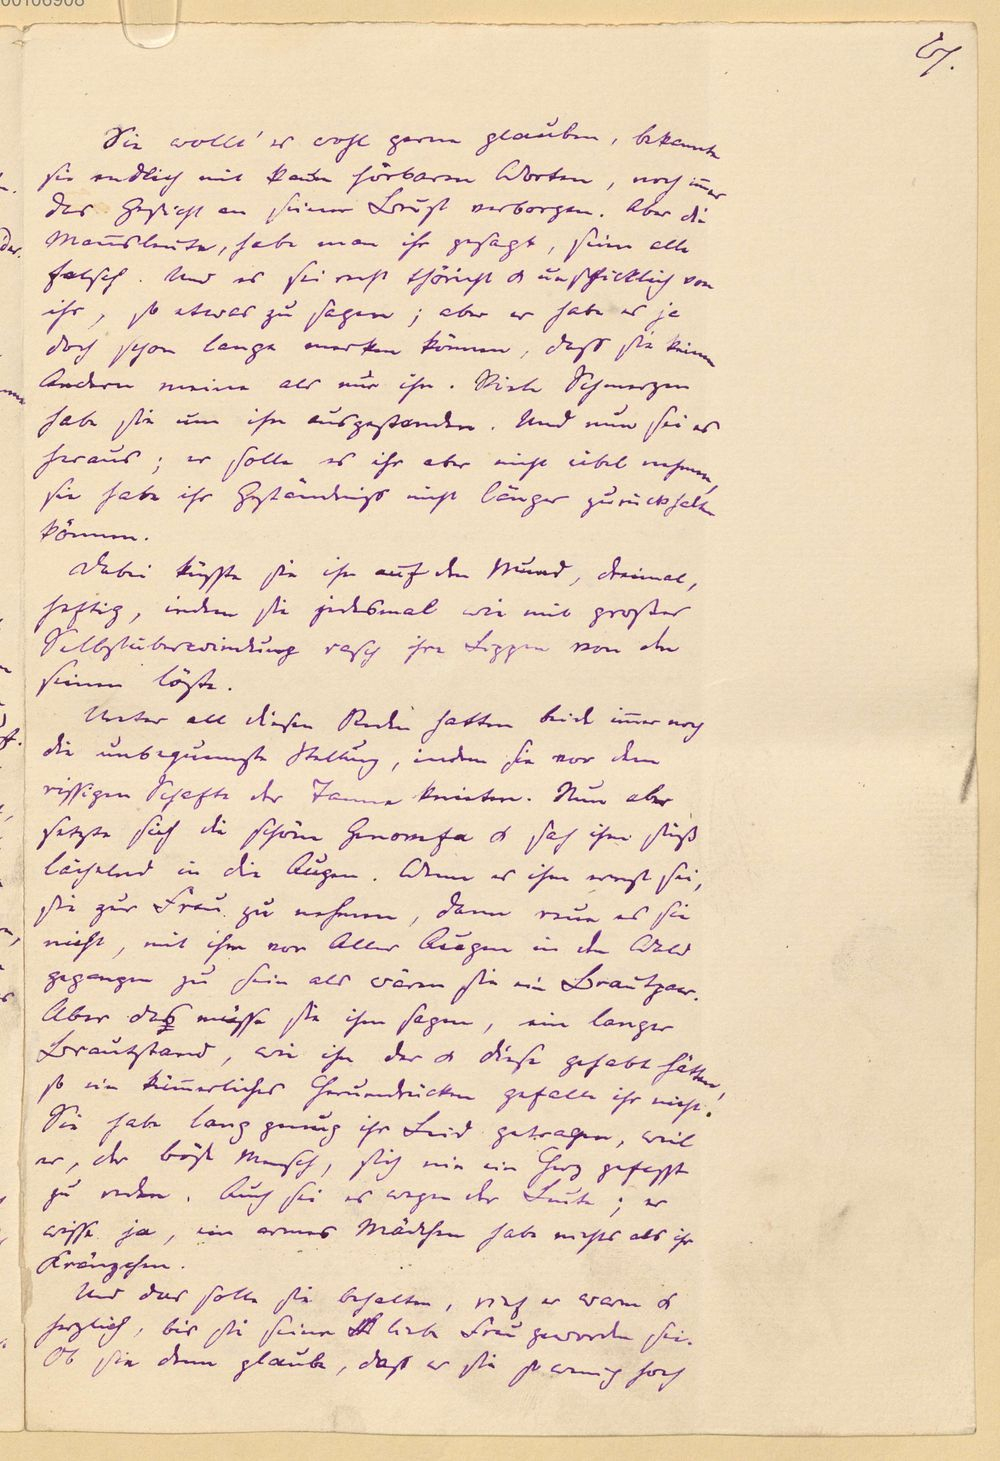 00106908
67.
Sie wollt' es wohl gerne glauben, bekannte
sie endlich mit kaum hörbaren Worten, noch im̄er
das Gesicht an seiner Brust verborgen. Aber die
Man̄sleute, habe man ihr gesagt, seien alle
falsch. Und es sei recht thöricht & unschicklich von
ihr, so etwas zu sagen; aber er habe es ja
doch schon lange merken können, dass sie keinen
Andern meine als nur ihn. Viele Schmerzen
habe sie um ihn ausgestanden. Und nun sei es
heraus; er solle es ihr aber nicht übel nehmen,
sie habe ihr Geständniss nicht länger zurückhalten
können.
Dabei küsste sie ihn auf den Mund, dreimal,
heftig, indem sie jedesmal wie mit grosser
Selbstüberwindung rasch ihre Lippen von den
seinen löste.
Unter all diesen Reden hatten beide im̄er noch
die unbequemste Stellung, indem sie vor dem
rissigen Schafte der Tanne knieten. Nun aber
setzte sich die schöne Genovefa & sah ihm süss
lächelnd in die Augen. Wenn es ihm ernst sei,
sie zur Frau zu nehmen, dann reue es sie
nicht, mit ihm vor Aller Augen in den Wald
gegangen zu sein als wären sie ein Brautpaar.
Aber das müsse sie ihm sagen, ein langer
Brautstand, wie ihn der & diese gehabt hätten,
so ein küm̄erliches Herumdrücken gefalle ihr nicht.
Sie habe lang genug ihr Leid getragen, weil
er, der böse Mensch, sich nie ein Herz gefasst
zu reden. Auch sei es wegen der Leute; er
wisse ja, ein armes Mädchen habe nichts als ihr
Kränzchen.
Und das solle sie behalten, rief er warm &
herzlich, bis sie seine liebe Frau geworden sei.
Ob sie denn glaube, dass er sie so wenig hoch